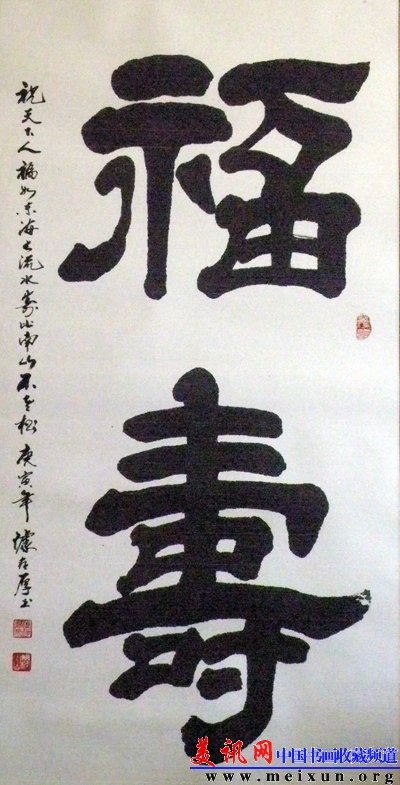 福壽
祝天下人福如东海之流水寿比南山不老松庚寅年
美讯网 中国书画收藏频道
www.meixun.org